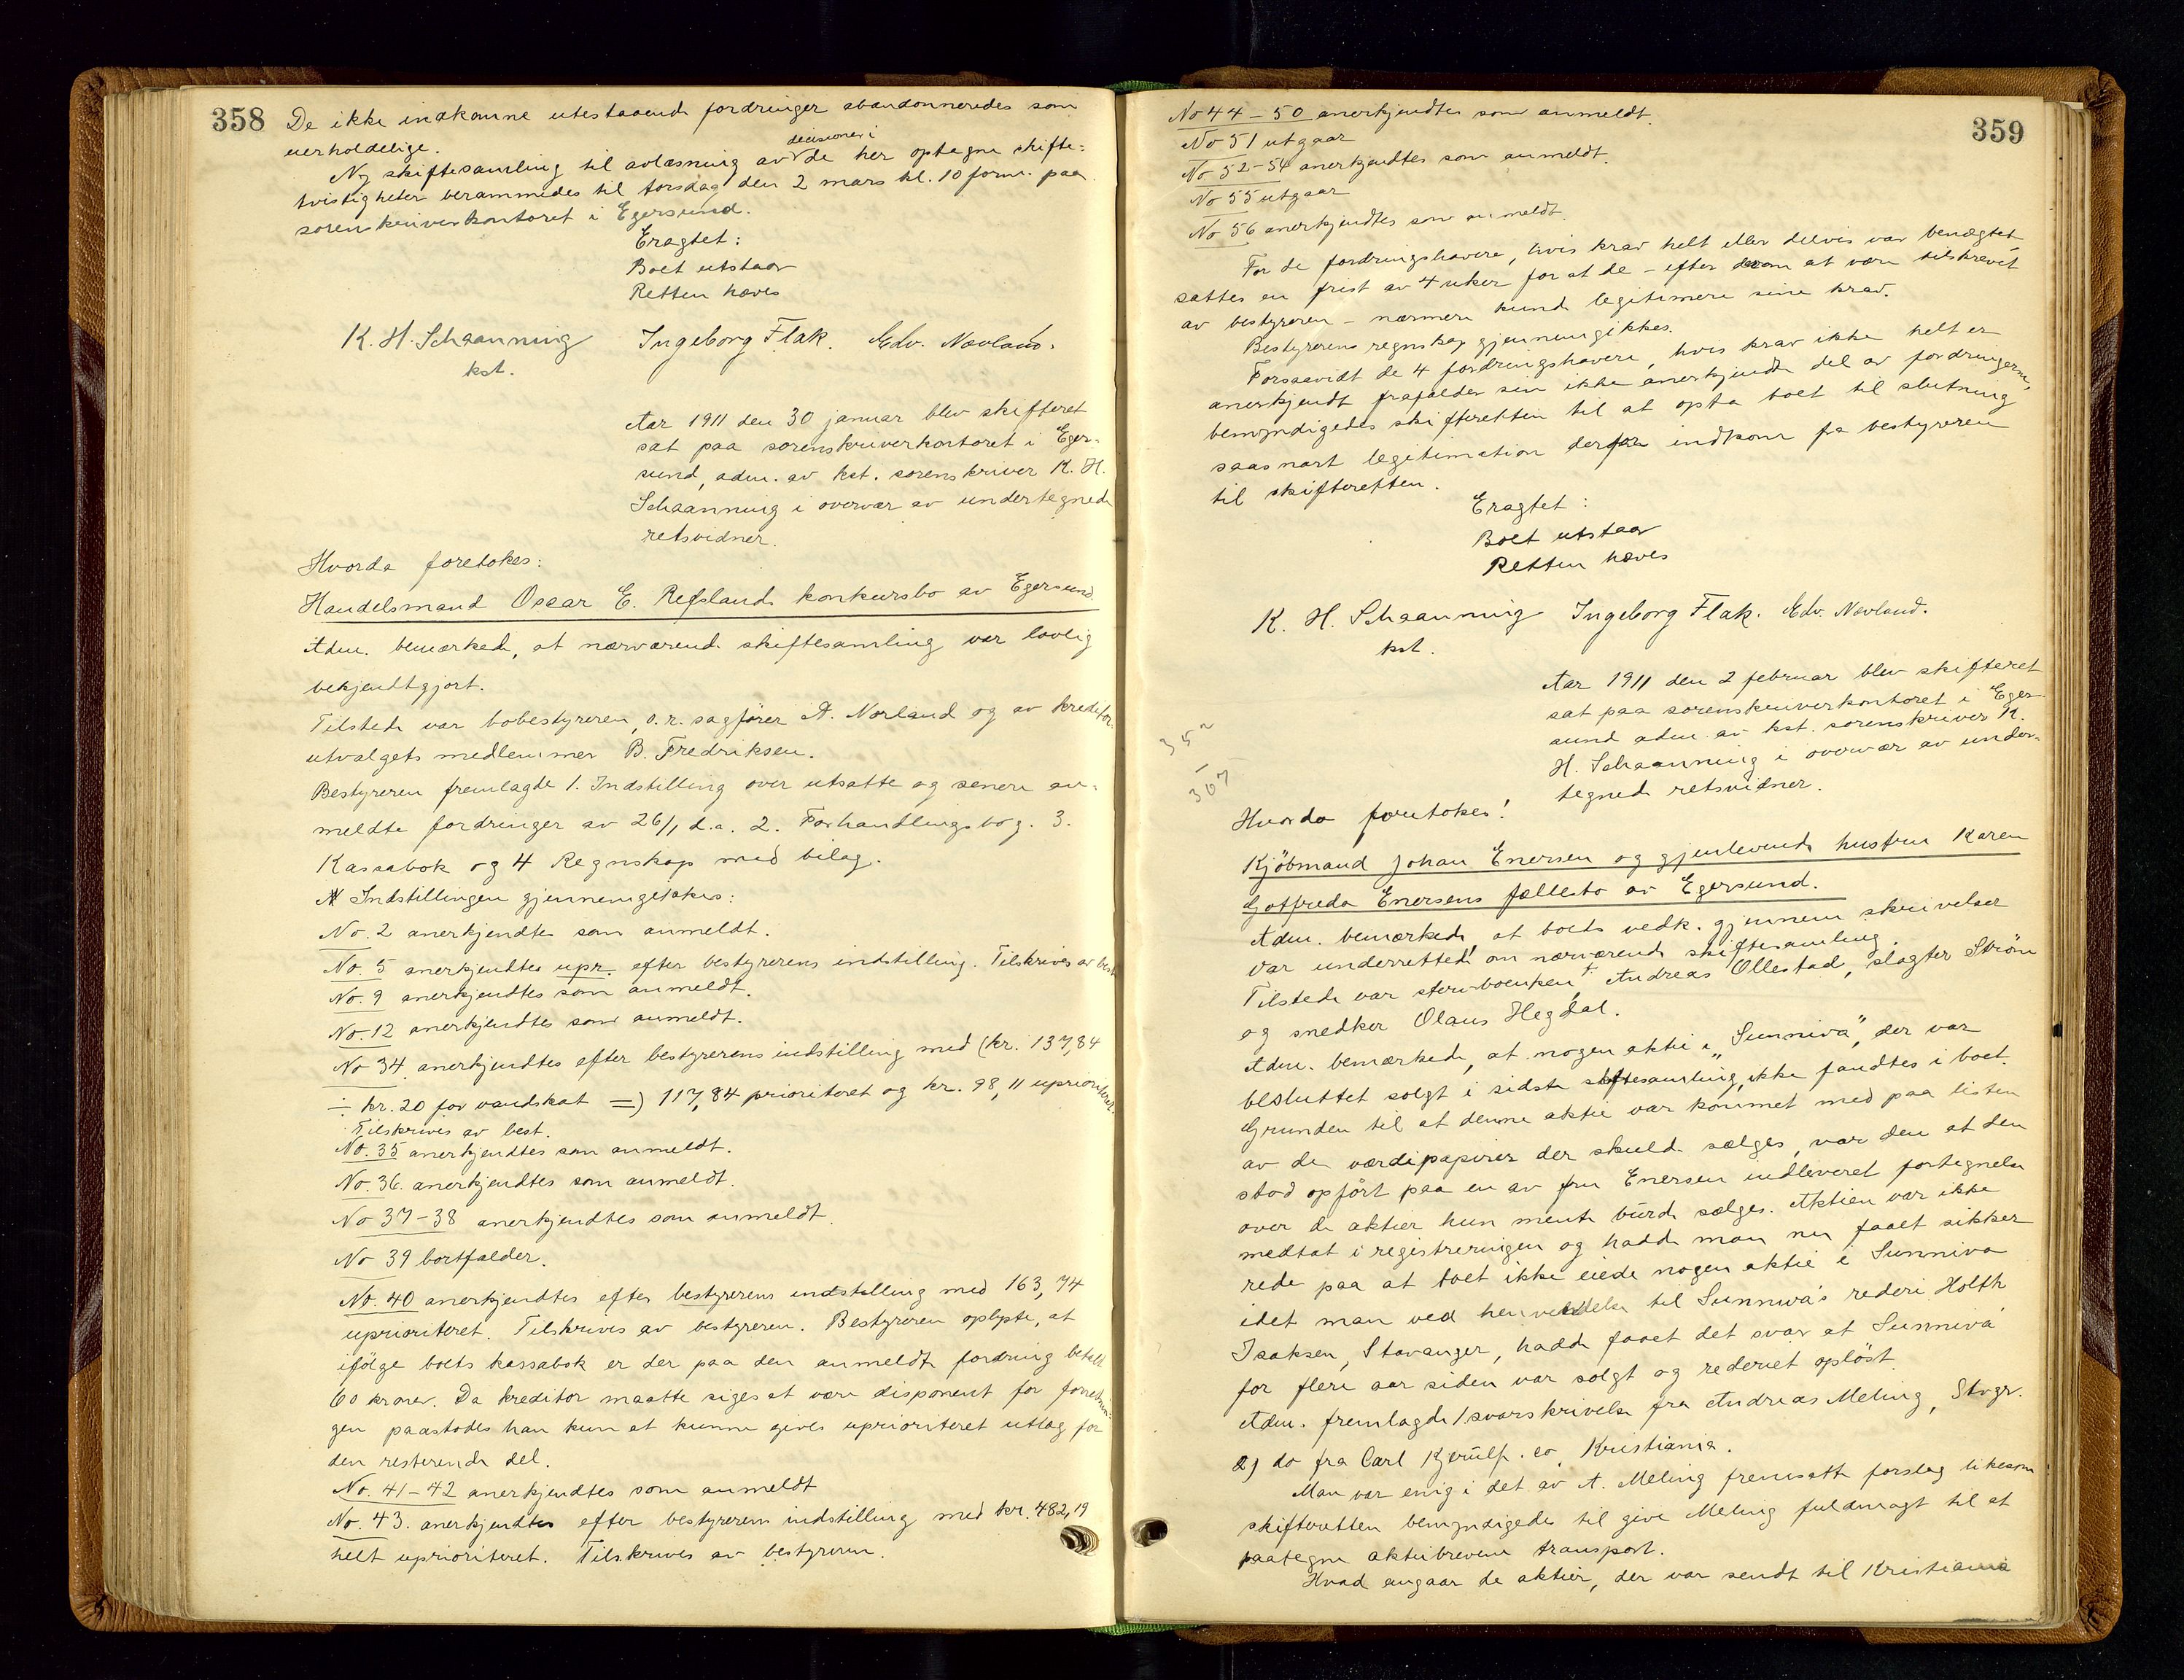 358
De ikke indkomne utestaaende fordringer abandonneredes som
uerholdelige.
decisioner i
Ny skiftesamling til avlæsning av de her optagne skifte-
tvistigheter berammedes til torsdag den 2 mars kl. 10 form. paa
sorenskriverkontoret i Egersund.
Eragtet:
Boet utstaar
Retten hæves
K. H. Schaanning Ingeborg Flak. Edv. Nævland.
kst.
Aar 1911 den 30 januar blev skifteret
sat paa sorenskriverkontoret i Eger-
sund, adm. av kst. sorenskriver K. H.
Schaanning i overvær av undertegnede
retsvidner.
Hvorda foretokes:
Handelsmand Oscar E. Refslands konkursbo av Egersund
Adm. bemærkede, at nærværende skiftesamling var lovlig
bekjendtgjort.
Tilstede var bobestyreren, o.r. sagfører A. Norland og av kreditor-
utvalgets medlemmer B. Fredriksen.
Bestyreren fremlagde 1. Indstilling over utsatte og senere an-
meldte fordringer av 26/1 d.a. 2. Forhandlingsbog. 3.
Kassabok og 4 Regnskap med bilag.
Indstillingen gjennemgikkes:
No. 2 anerkjendtes som anmeldt.
No. 5 anerkjendtes upr. efter bestyrerens indstilling. Tilskrives av best.
No. 9 anerkjendtes som anmeldt.
No. 12 anerkjendtes som anmeldt.
No 34. anerkjendtes efter bestyrerens indstilling med (kr. 137,84
÷ kr. 20 for vandskat =) 117,84 prioritert og kr. 98,11 uprioritert.
Tilskrives av best.
No. 35 anerkjendtes som anmeldt.
No. 36. anerkjendtes som anmeldt.
No 37-38 anerkjendtes som anmeldt.
No 39 bortfalder.
No. 40 anerkjendtes efter bestyrerens indstilling med 163,74
uprioriteret. Tilskrives av bestyreren. Bestyreren oplyste, at
ifølge boets kassabok er der paa den anmeldte fordring betalt
60 kroner. Da kreditor maatte siges at være disponent for forretnin-
gen paastodes han kun at kunne gives uprioriteret utlæg for
den resterende del.
No. 41-42 anerkjendtes som anmeldt
No. 43. anerkjendtes efter bestyrerens indstilling med kr. 482,19
helt uprioriteret. Tilskrives av bestyreren.
359
No 44-50 anerkjendtes som anmeldt.
No 51 utgaar
No 52-54 anerkjendtes som anmeldt.
No 55 utgaar
No 56 anerkjendtes som anmeldt.
For de fordringshavere, hvis krav helt eller delvis var benægtet
sattes en frist av 4 uker for at de - efter derom at være tilskrevet
av bestyreren - nærmere kunde legitimere sine krav.
Bestyrerens regnskap gjennemgikkes.
Forsaavidt de 4 fordringshavere, hvis krav ikke helt er
anerkjendt frafalder sin ikke anerkjendte del av fordringerne,
bemyndigedes skifteretten til at opta boet til slutning
saasnart legitimation derfor indkom fra bestyreren
til skifteretten.
Eragtet:
Boet utstaar
Retten hæves
K. H. Schaanning Ingeborg Flak. Edv. Nævland.
kst.
352
-
367
Aar 1911 den 2 februar blev skifteret
sat paa sorenskriverkontoret i Eger-
sund adm. av kst. sorenskriver K.
H. Schaanning i overvær av under-
tegnede retsvidner.
Hvorda foretokes!
Kjöbmand Johan Enersen og gjenlevende hustru Karen
Gotfreda Enersens fællesbo av Egersund.
Adm. bemærkede, at boets vedk. gjennem skrivelser
var underrettede om nærværende skiftesamling.
Tilstede var stervboenken, Andreas Ollestad, slagter Ström
og snedker Olaus Hegdal.
Adm. bemærkede, at nogen aktie i „Sunniva", der var
besluttet solgt i sidste skiftesamling, ikke fandtes i boet.
Grunden til at denne aktie var kommet med paa listen
av de værdipapirer der skulde sælges, var den at den
stod opført paa en av fru Enersen indleveret fortegnelse
over de aktier hun mente burde sælges. Aktien var ikke
medtat i registreringen og hadde man nu faaet sikker
rede paa at boet ikke eiede nogen aktie i Sunniva
idet man ved henvendelse til Sunniva's rederi Holth
Isaksen, Stavanger, hadde faaet det svar at Sunniva
for flere aar siden var solgt og rederiet opløst.
Adm. fremlagde 1 svarskrivelse fra Andreas Meling, Stvgr.
2) do fra Carl Kjerulf. co, Kristiania.
Man var enig i det av A. Meling fremsatte forslag likesom
skifteretten bemyndigedes til give Meling fuldmagt til at
paategne aktiebrevene transport.
Hvad angaar de aktier, der var sendt til Kristiania